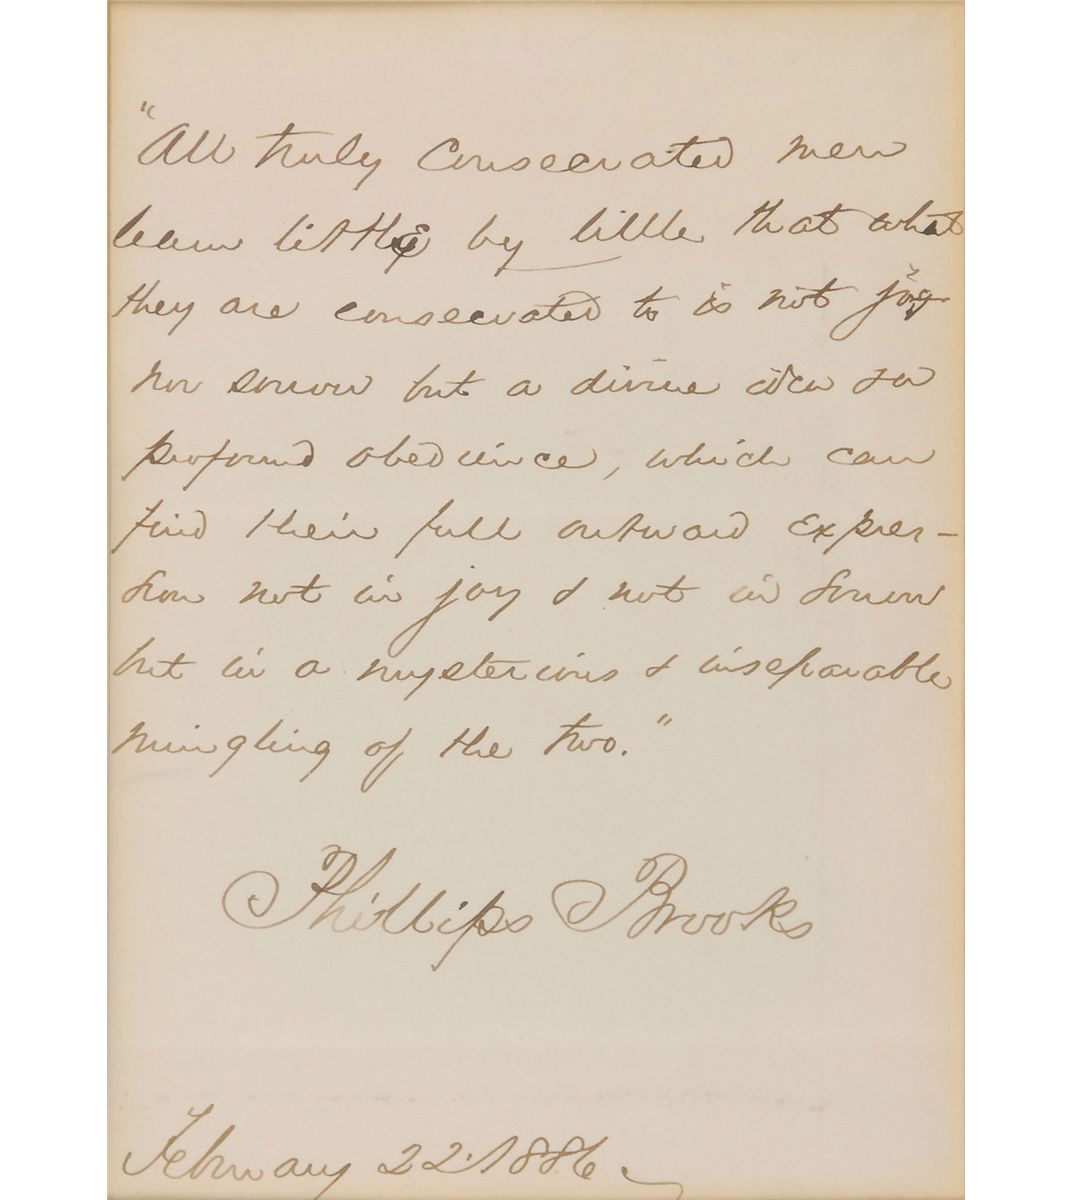 "All truly Consecrated men
learn little by little that what
they are consecrated to is not joy
nor sorrow but a divine idea
profound obedience, which can
find their full outward expres-
sion not in joy & not in sorrow
but in a mysterious & inseparable
mingling of the two."
Phillips Brooks
February 22. 1886